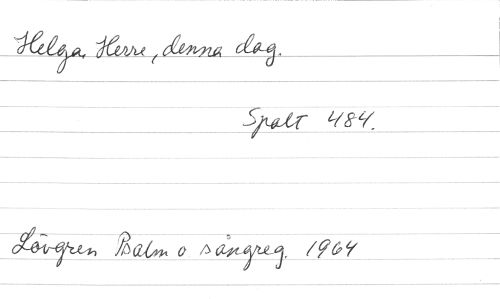 Helga, Herre, denna dag.
Spalt 484.
Lövgren Psalm o sångreg. 1964